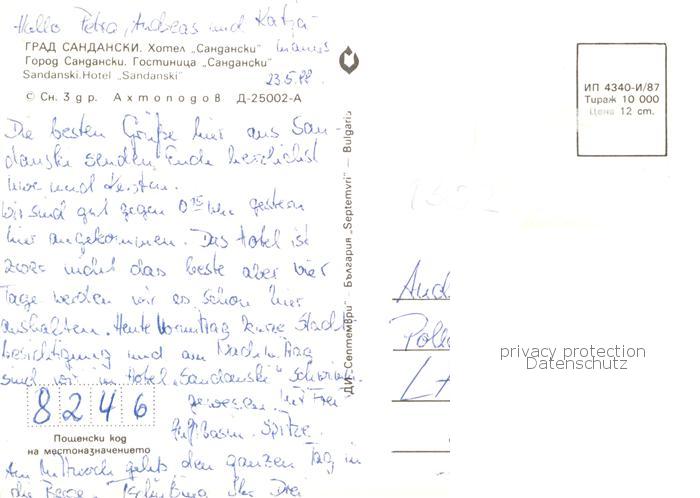 Hallo Petra, Andreas und Katja
ГРАД САНДАНСКИ. Хотел „Сандански“
Город Сандански. Гостиница „Сандански“
Sandanski. Hotel „Sandanski“
23.5.88
© Сн. З др. Ахтополов Д-25002-А
Die besten Grüße hier aus San-
danski senden Euch herzlichst
und
Wir sind gut gegen 0 15 Uhr gestern
hier angekommen. Das Hotel ist
zwar nicht das beste aber vier
Tage werden wir es schon hier
aushalten. Heute Vormittag kurze Stadt-
besichtigung und am Nachmittag
sind wir im Hotel „Sandanski“ Schwimmen
gewesen. Im Frei
Spitze.
8246
Пощенски код
на местоназначението
Am Mittwoch gehts den ganzen Tag in
die Berge. Drei
ДИ „Септември“ — България „Septemvri“ — Bulgaria
ИП 4340-И/87
Тираж 10 000
Цена 12 ст.
1502
And
L
privacy protection
Datenschutz